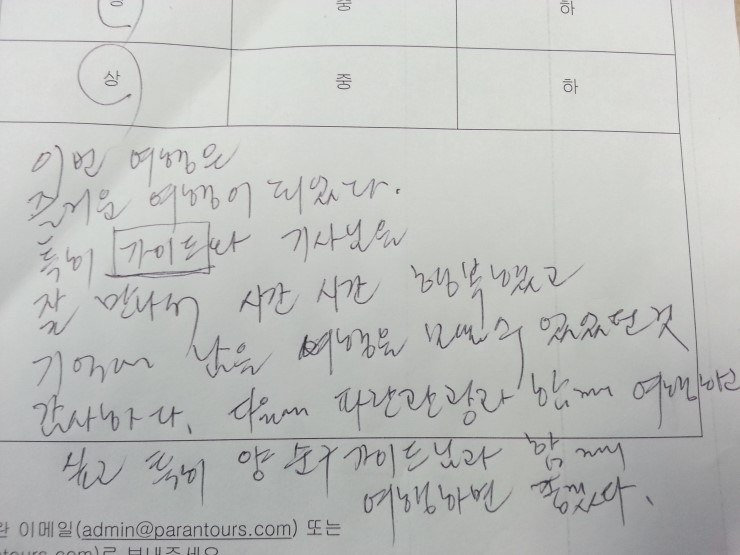 상 중 하
상 중 하
이번 여행은
즐거운 여행이 되었다.
특히 가이드와 기사님을
잘 만나서 시간 시간 행복했고
기억에 남을 여행을 보낼 수 있었던 것
감사하다. 다음에 파란관광과 함께 여행하고
싶고 특히 양 순구 가이드님과 함께
여행하면 좋겠다.
이메일(admin@parantours.com) 또는
보내주세요